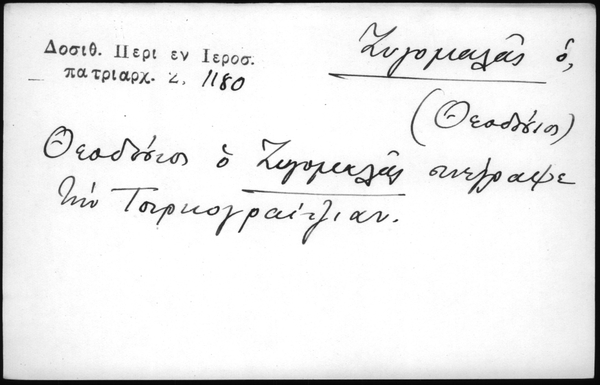 Δοσιθ. Περι εν Ιεροσ.
πατριαρχ. Σ, 1180
Ζυγομαλᾶς ὁ,
(Θεοδόσιος)
Θεοδόσιος ὁ Ζυγομαλᾶς συνέγραψε
τὴν Τουρκογραικίαν.